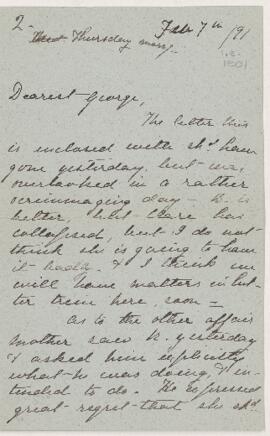 2.
Feb 7th/91
Thursday morng.
i.e.
1901
Dearest George,
The letter this
is enclosed with shd have
gone yesterday, but was
overlooked in a rather
overwhelming day — is
better, but Clare has
collapsed, but I do not
think she is going to have
it badly. & I think we
will have matters in bet-
ter trim here, soon —
As to the other affair
Mother saw K. yesterday
& asked him explicitly
what he was doing, & in-
tended to do. He expressed
great regret that she shd